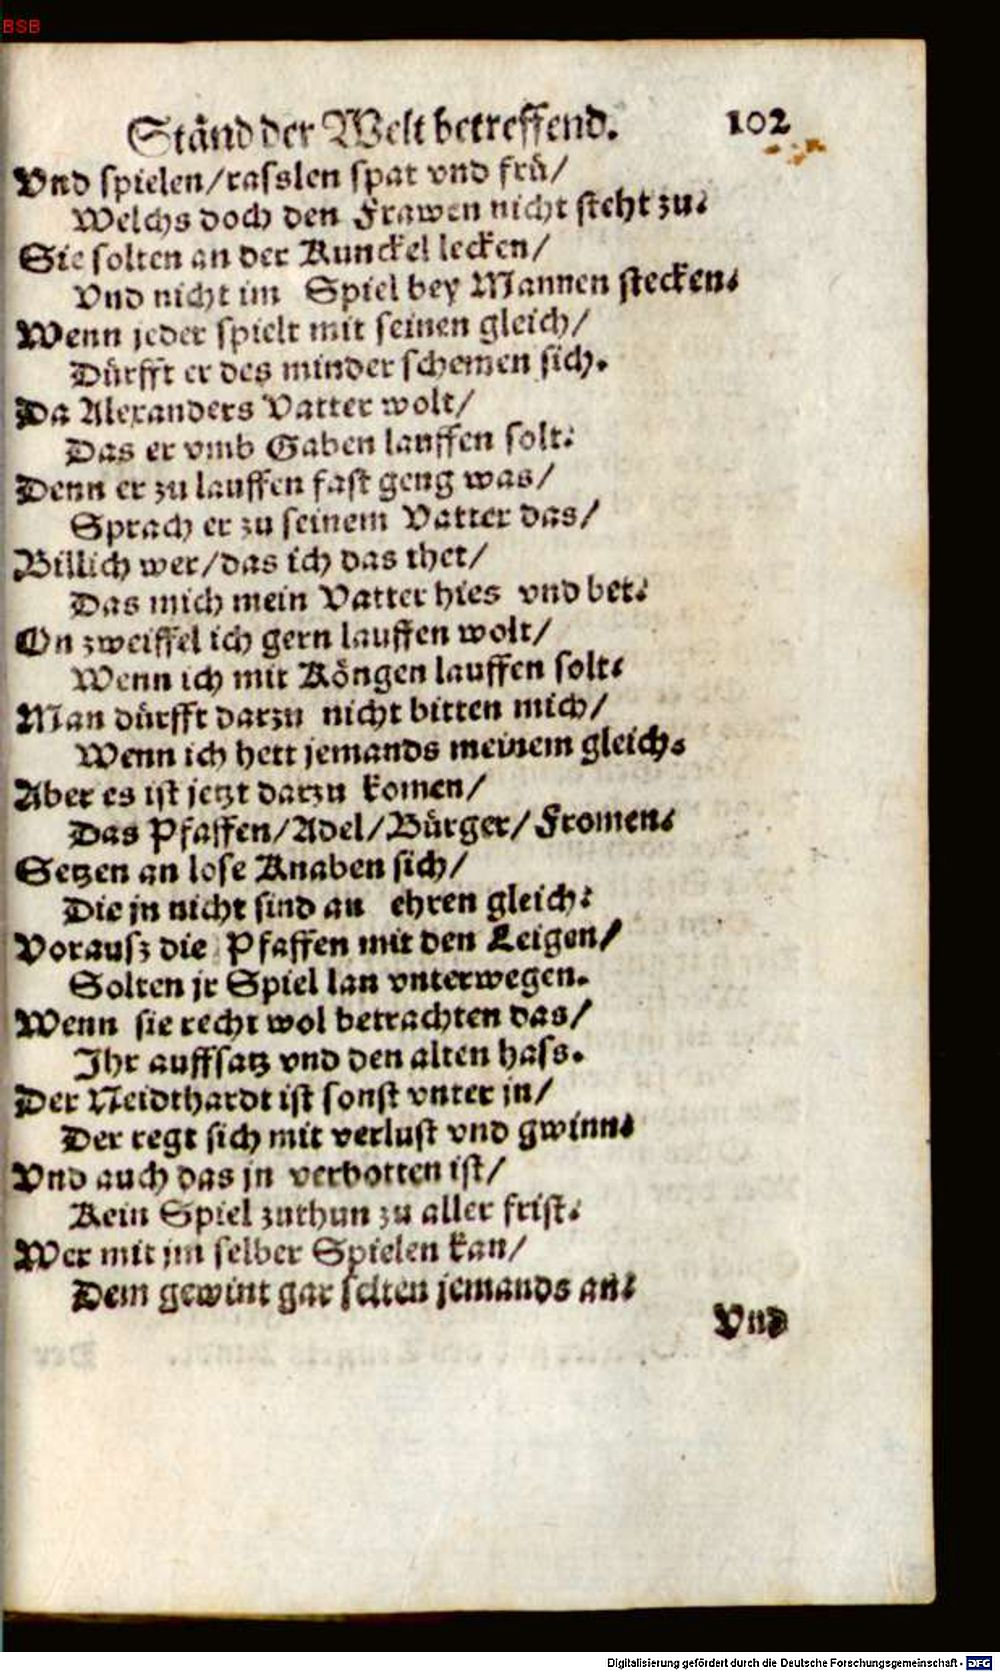 BSB
Ständ der Welt betreffend. 102
Vnd spielen/rasslen spat vnd frü/
Welchs doch den Frawen nicht steht zu.
Sie solten an der Kunckel lecken/
Vnd nicht im Spiel bey Mannen stecken.
Wenn jeder spielt mit seinen gleich/
Dürfft er des minder schemen sich.
Da Alexanders Vatter wolt/
Das er vmb Gaben lauffen solt.
Denn er zu lauffen fast geng was/
Sprach er zu seinem Vatter das/
Billich wer/das ich das thet/
Das mich mein Vatter hies vnd bet.
On zweiffel ich gern lauffen wolt/
Wenn ich mit Köngen lauffen solt.
Man dürfft darzu nicht bitten mich/
Wenn ich hett jemands meinem gleich.
Aber es ist jetzt darzu komen/
Das Pfaffen/Adel/Bürger/Fromen.
Setzen an lose Knaben sich/
Die jn nicht sind an ehren gleich.
Vorausz die Pfaffen mit den Leigen/
Solten jr Spiel lan vnterwegen.
Wenn sie recht wol betrachten das/
Ihr auffsatz vnd den alten hass.
Der Neidthardt ist sonst vnter jn/
Der regt sich mit verlust vnd gwinn.
Vnd auch das jn verbotten ist/
Kein Spiel zuthun zu aller frist.
Wer mit jm selber Spielen kan/
Dem gewint gar selten jemands an.
Vnd
Digitalisierung gefördert durch die Deutsche Forschungsgemeinschaft - DFG